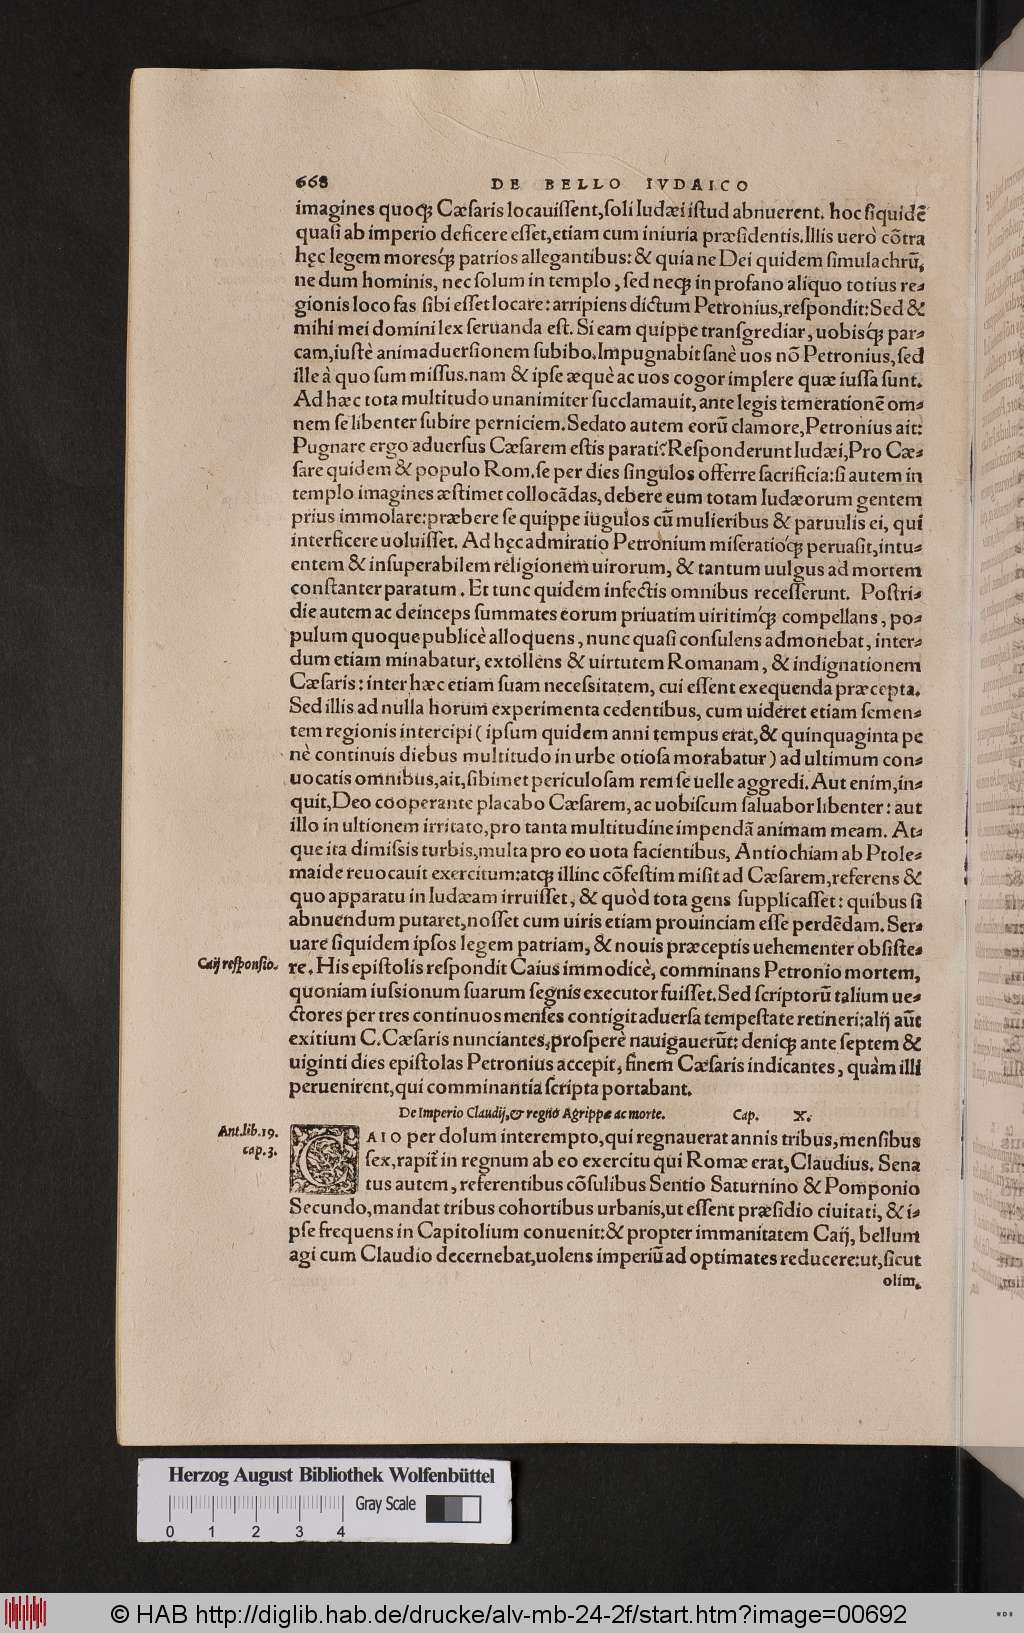 668 DE BELLO IVDAICO
imagines quoq; Cæſaris locauiſſent, ſoli Iudæi iſtud abnuerent. hoc ſiquidẽ
quaſi ab imperio deficere eſſet, etiam cum iniuria præſidentis. Illis uerò cõtra
hęc legem moresq́; patrios allegantibus: & quia ne Dei quidem ſimulachrũ,
ne dum hominis, nec ſolum in templo, ſed neq; in profano aliquo totius re-
gionis loco fas ſibi eſſet locare: arripiens dictum Petronius, reſpondit: Sed &
mihi mei domini lex ſeruanda eſt. Si eam quippe tranſgrediar, uobisq́; par-
cam, iuſtè animaduerſionem ſubibo. Impugnabit ſanè uos nõ Petronius, ſed
ille à quo ſum miſſus. nam & ipſe æquè ac uos cogor implere quæ iuſſa ſunt.
Ad hæc tota multitudo unanimiter ſucclamauit, ante legis temerationẽ om-
nem ſe libenter ſubire perniciem. Sedato autem eorũ clamore, Petronius ait:
Pugnare ergo aduerſus Cæſarem eſtis parati? Reſponderunt Iudæi, Pro Cæ-
ſare quidem & populo Rom. ſe per dies ſingulos offerre ſacrificia: ſi autem in
templo imagines æſtimet collocãdas, debere eum totam Iudæorum gentem
prius immolare: præbere ſe quippe iugulos cũ mulieribus & paruulis ei, qui
interficere uoluiſſet. Ad hęc admiratio Petronium miſeratioq́; peruaſit, intu-
entem & inſuperabilem religionem uirorum, & tantum uulgus ad mortem
conſtanter paratum. Et tunc quidem infectis omnibus receſſerunt. Poſtri-
die autem ac deinceps ſummates eorum priuatim uiritimq́; compellans, po-
pulum quoque publicè alloquens, nunc quaſi conſulens admonebat, inter-
dum etiam minabatur, extollens & uirtutem Romanam, & indignationem
Cæſaris: inter hæc etiam ſuam neceſsitatem, cui eſſent exequenda præcepta.
Sed illis ad nulla horum experimenta cedentibus, cum uideret etiam ſemen-
tem regionis intercipi (ipſum quidem anni tempus erat, & quinquaginta pe
nè continuis diebus multitudo in urbe otioſa morabatur) ad ultimum con-
uocatis omnibus, ait, ſibimet periculoſam rem ſe uelle aggredi. Aut enim, in-
quit, Deo cooperante placabo Cæſarem, ac uobiſcum ſaluabor libenter: aut
illo in ultionem irritato, pro tanta multitudine impendã animam meam. At-
que ita dimiſsis turbis, multa pro eo uota facientibus, Antiochiam ab Ptole-
maide reuocauit exercitum: atq; illinc cõfeſtim miſit ad Cæſarem, referens &
quo apparatu in Iudæam irruiſſet, & quòd tota gens ſupplicaſſet: quibus ſi
abnuendum putaret, noſſet cum uiris etiam prouinciam eſſe perdẽdam. Ser-
uare ſiquidem ipſos legem patriam, & nouis præceptis uehementer obſiſte-
Caij reſponſio. re. His epiſtolis reſpondit Caius immodicè, comminans Petronio mortem,
quoniam iuſsionum ſuarum ſegnis executor fuiſſet. Sed ſcriptorũ talium ue-
ctores per tres continuos menſes contigit aduerſa tempeſtate retineri: alij aũt
exitium C. Cæſaris nunciantes, proſperè nauigauerũt: deniq; ante ſeptem &
uiginti dies epiſtolas Petronius accepit, finem Cæſaris indicantes, quàm illi
peruenirent, qui comminantia ſcripta portabant.
De Imperio Claudij, & regno Agrippæ ac morte. Cap. X.
Ant. lib. 19.
cap. 3.
CAIO per dolum interempto, qui regnauerat annis tribus, menſibus
ſex, rapit̃ in regnum ab eo exercitu qui Romæ erat, Claudius. Sena
tus autem, referentibus cõſulibus Sentio Saturnino & Pomponio
Secundo, mandat tribus cohortibus urbanis, ut eſſent præſidio ciuitati, & i-
pſe frequens in Capitolium conuenit: & propter immanitatem Caij, bellum
agi cum Claudio decernebat, uolens imperiũ ad optimates reducere: ut, ſicut
olim,
Herzog August Bibliothek Wolfenbüttel
Gray Scale
0 1 2 3 4
© HAB http://diglib.hab.de/drucke/alv-mb-24-2f/start.htm?image=00692